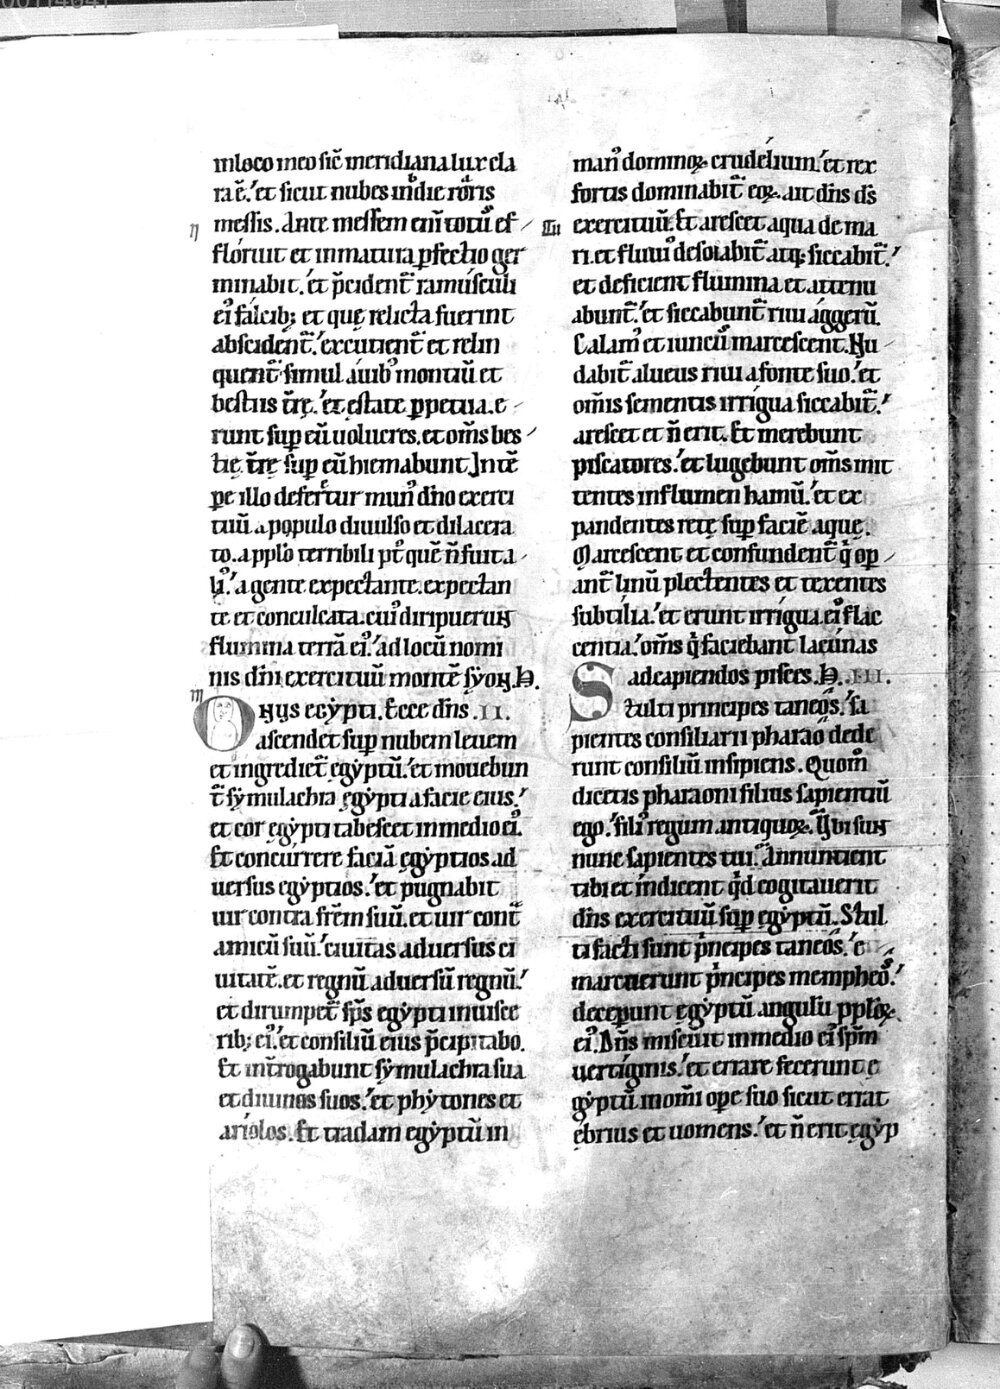 in loco meo sic̄ meridiana lux cla
ra ē. et sicut nubes in die roris
messis. Ante messem eni̅ totus ef
floruit et inmatura ꝑfectio ger
minabit. et p̄cident̄ ramusculi
ei᾽ falcib; et que relicta fuerint
abscident̄. excutient̄ et relin
quent̄ simul auib᾽ montiū et
bestiis t̄rę. et estate ꝑpetua e
runt sup eū uolucres. et om̄s bes
tię t̄rę sup eū hiemabunt. In tē
pe illo defertur mun᾽ dn̄o exerci
tuū a populo diuulso et dilacera
to. a ppl̄o terribili pt᾽ quē n̄ fuit a
li᾽. a gente expectante. expectan
te et conculcata. cui᾽ diripuerunt
flumina terrā ei᾽. ad locū nomi
nis dn̄i exercituū montē syon. H.
Onus egypti. Ecce dn̄s .II.
ascendet sup nubem leuem
et ingrediet̄ egyptū. et mouebun
t̄ symulachra egypti a facie eius.
et cor egypti tabescet in medio ei᾽.
Et concurrere faciā egyptios ad
uersus egyptios. et pugnabit
uir contra fr̄em suū. et uir cont̄
amicū suū. ciuitas aduersus ci
uitatē. et regnū aduersū regnū.
et dirumpet̄ sp̄s egypti in uisce
rib; ei᾽. et consiliū eius p̄cipitabo.
Et int̄rogabunt symulachra sua
et diuinos suos. et phytones et
ariolos. Et tradam egyptū in
man᾽ dominoꝝ crudelium. et rex
fortis dominabit̄ eoꝝ. ait dn̄s ds̄
exercituū. Et arescet aqua de ma
ri. et fluui᾽ desolabit̄ atq; siccabit̄.
et deficient flumina et attenu
abunt̄. et siccabunt̄ riui aggerū.
Calam᾽ et iuncus marcescent. Nu
dabit̄ alueus riui a fonte suo. et
om̄is sementis irrigua siccabit̄.
arescet et n̄ erit. Et merebunt
piscatores. et lugebunt om̄s mit
tentes in flumen hamū. et ex
pandentes rete sup faciē aque.
Marcescent et confundent̄ q̇ op
ant̄ linū plectentes et texentes
subtilia. et erunt irrigua ei᾽ flac
centia. om̄s q̇ faciebant lacunas
ad capiendos pisces. H. III.
Stulti principes taneos. sa
pientes consiliarii pharao dede
runt consiliū insipiens. Quom᾽
dicetis pharaoni filius sapientiū
ego. fili᾽ regum antiquoꝝ. Vbi sunt
nunc sapientes tui. Annuncient
tibi et indicent qd̄ cogitauerit
dn̄s exercituū sup egyptū. Stul
ti facti sunt p̄ncipes taneos. e
marcuerunt p̄ncipes mempheos.
decepunt egyptū angulū pploꝝ
ei᾽. Dn̄s miscuit in medio ei᾽ sp̄m
uertiginis. et errare fecerunt e
gyptū in om̄i ope suo sicut errat
ebrius et uomens. et n̄ erit egyp